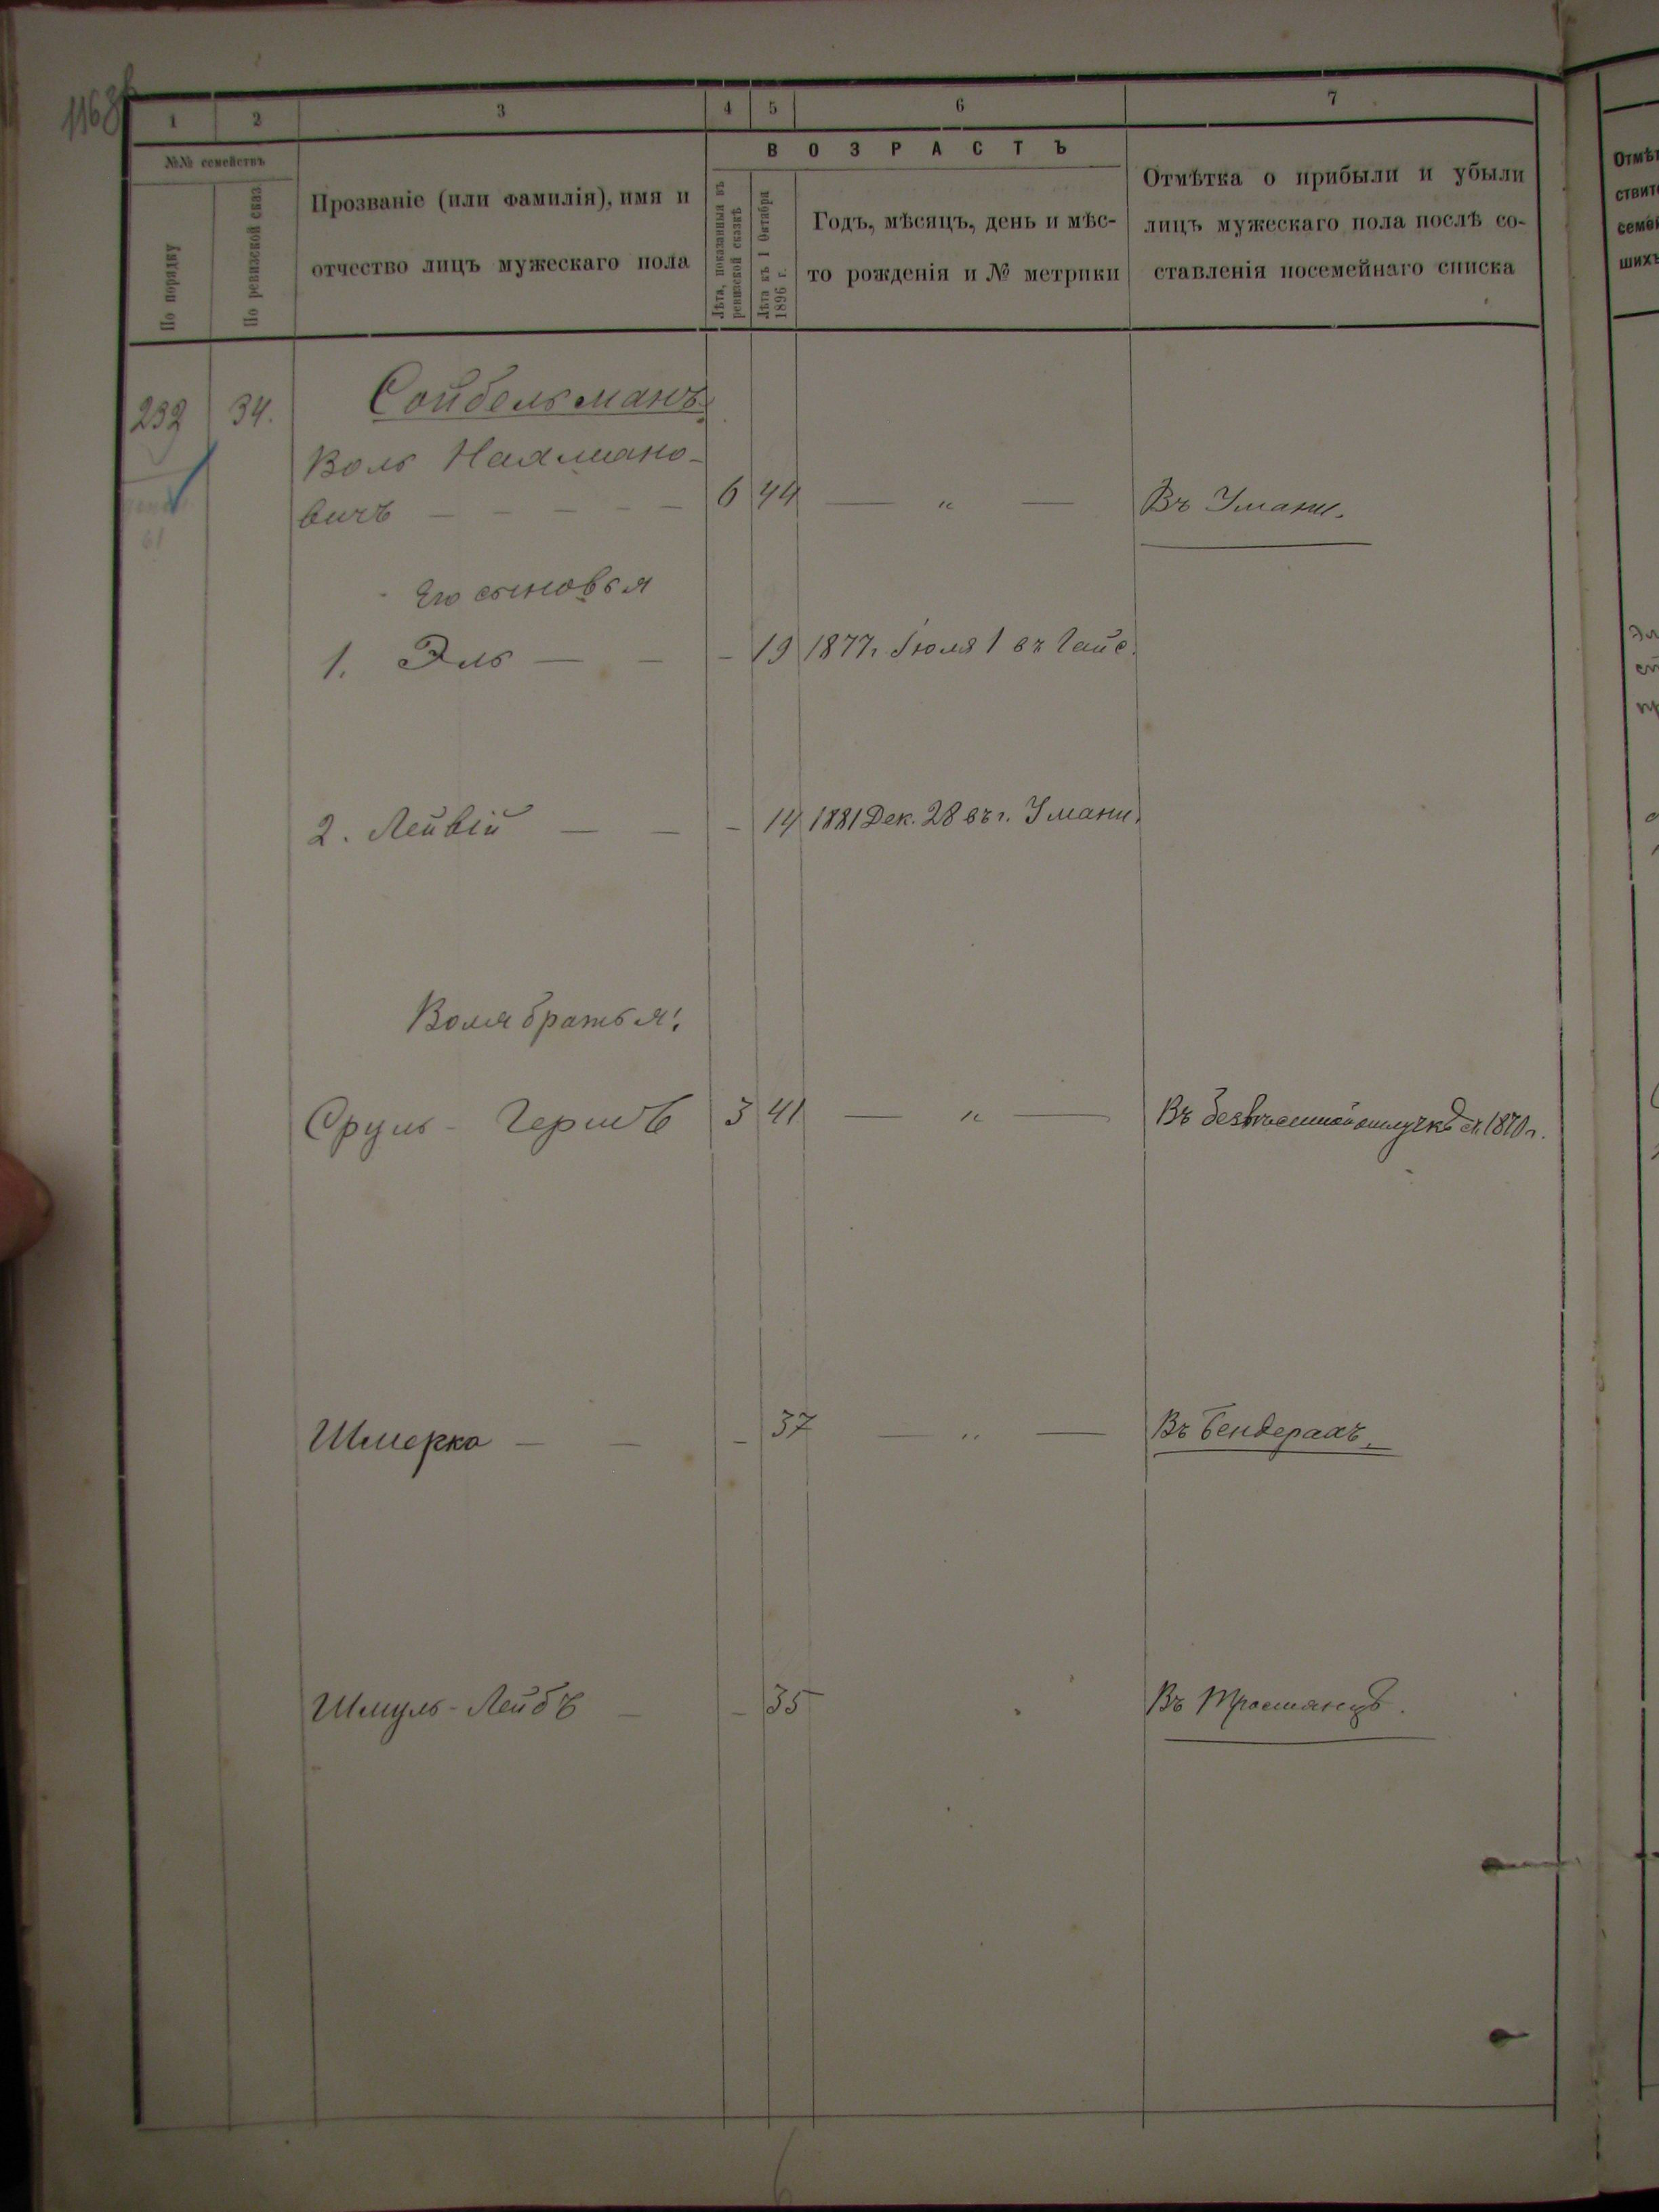 1168
1 2 3 4 5 6 7
№№ семействъ
По порядку
По ревизской сказ
Прозваніе (или фамилія), имя и
отчество лицъ мужескаго пола
ВОЗРАСТЪ
Лѣта, показанныя въ
ревизской сказкѣ
Лѣта къ 1 Октября
1896 г.
Годъ, мѣсяцъ, день и мѣс-
то рожденія и № метрики
Отмѣтка о прибыли и убыли
лицъ мужескаго пола послѣ со-
ставленія посемейнаго списка
232 34. Сойбельманъ
Воль Нахмано-
вичъ - - - - - 6 44 — " — Въ Умани.
Его сыновья
1. Эль — - - 19 1877 г. Іюля 1 въ Гайс.
2. Лейвій — - - 14 1881 Дек. 28 въ г. Умани.
Воля братья:
Сруль - Гершъ 3 41 — " — Въ безвѣстной отлучкѣ съ 1870 г.
Шмерко - - - 37 — " — Въ Бендерахъ.
Шмуль-Лейбъ - - 35 Въ Тростянцѣ.